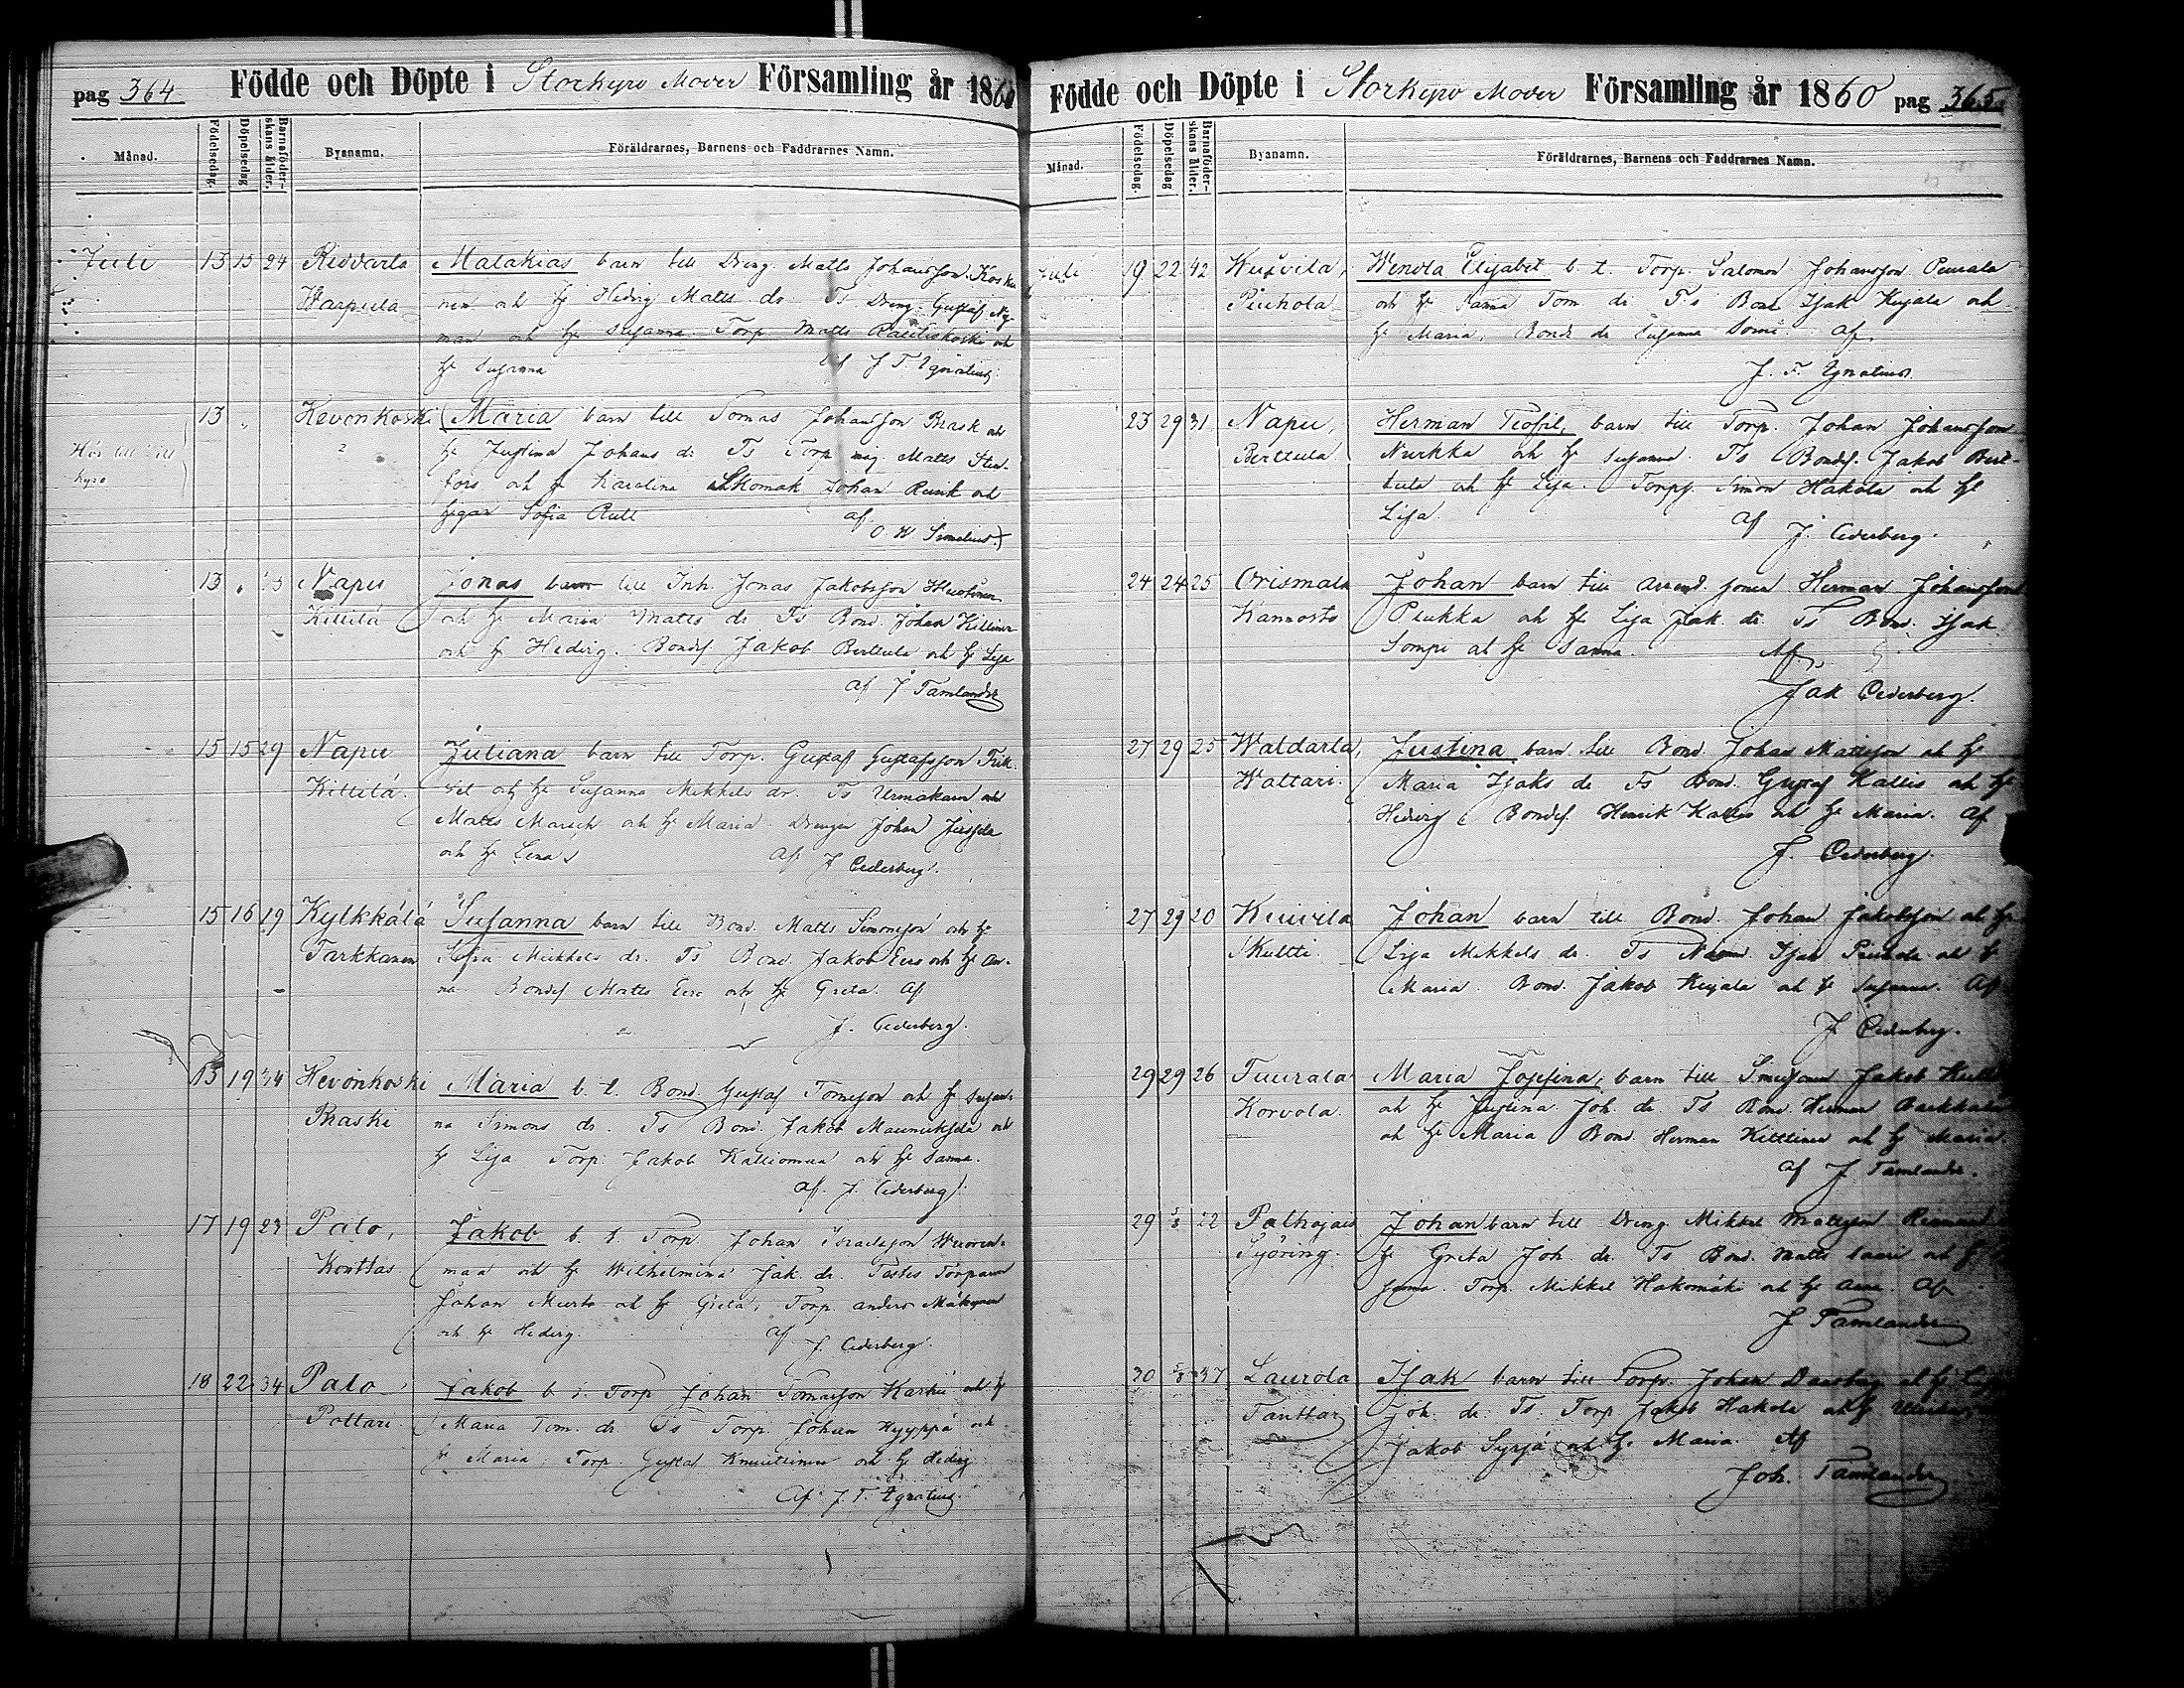 pag 364 Födde och Döpte i Storkyro Moder Församling år 1860
Månad. Födelsedag. Döpelsedag Barnaföderskans ålder. Byanamn. Föräldrarnes, Barnens och Faddrarnes Namn.
Juli 13 15 24 Ridvarla Malakias barn till Dreng. Matts Johansson Koski
Haapula nen och h. Hedvig Matts dr. Ts Dreng. Gustaf Ny-
man och h. Susanna. Torp. Matts Rautiskoski och
h. Susanna af J. F. Ignatius.
13 " Hevonkoski (Maria barn till Tomas Johansson Brask och
Hör till Lill h. Justina Johans dr. Ts Torp. mag. Matts Sten-
kyro fors och h. Karolina Johan och
Sofia Rutt af
O W Simelius.)
13 " Napu Jonas barn till Inh. Jonas Jakobsson
Kittilä och h. Maria Matts dr. Ts Bond. Johan Kittinen
och h. Hedvig. Bonds. Jakob Berttula och h. Lisa
af J Tamlander
15 15 29 Napu Juliana barn till Torp. Gustaf Gustafsson
Kittilä. och h. Susanna Mikkels dr. Ts Urmakaren
Matts March och h. Maria. Drengen Johan
och h. Lena af J Cederberg.
15 16 19 Kylkkälä Susanna barn till Bond. Matts Simonsson och h.
Tarkkanen Mikkels dr. Ts Bond. Jakob Eero och h. An-
na Bonds Matts Eero och h. Greta. af
J. Cederberg.
15 19 34 Hevonkoski Maria b. t. Bond. Gustaf Tomsson och h. Susan-
Braski na Simons dr. Ts Bond. Jakob och
h. Lisa Torp. Jakob Kalliomaa och h. Sanna.
af. J. Cederberg.
17 19 23 Palo, Jakob b. t. Torp Johan Israelsson Wuoren-
Konttas maa och h. Wilhelmina Jak. dr. Testes Torparen
Johan Murto och h. Greta, Torp. Anders
och h. Hedvig. af J. Cederberg.
18 22 34 Palo Jakob b. t. Torp Johan Tomasson Karhu och h
Pottari. Maria Tom. dr. Ts Torp. Johan Hyyppä och
h. Maria, Torp. Gustaf Knuuttinen och h. Hedvig
af J. F. Ignatius.
Födde och Döpte i Storkyro Moder Församling år 1860 pag 365
Månad. Födelsedag. Döpelsedag Barnaföderskans ålder. Byanamn. Föräldrarnes, Barnens och Faddrarnes Namn.
Juli 19 22 42 Kuivila, Wendla Elisabet b. t. Torp. Salomon Johansson Peurala
Piukola och h. Sanna Tom dr Ts Bond Isak Kujala och
h. Maria, Bonds dr Susanna Somi. af.
J. F. Ignatius.
23 29 31 Napu, Herman Teofil, barn till Torp. Johan Johansson
Berttula Nurkka och h. Susanna. Ts Bonds. Jakob Bert-
tula och h. Lisa. Torps. Simon Hakola och h.
Lisa. af J. Cederberg.
24 24 25 Orismala Johan barn till Arrend. sonen Herman Johansson
Kannosto Piukka och h. Lisa Isak. dr. Ts Bond. Isak
Sompi och h. Sanna. Af.
Jak Cederberg.
27 29 25 Waldarla, Justina barn till Bond. Johan Mattsson och h.
Waltari. Maria Isaks dr Ts Bond. Gustaf Kallis och h.
Hedvig Bonds. Henrik Kallis och h. Maria. Af
J. Cederberg.
27 29 20 Kuivila Johan barn till Bond. Johan Jakobsson och h.
Kultti. Lisa Mikkels dr. Ts Nämnd. Isak Piukola och h
Maria. Bond. Jakob Kujala och h. Susanna. Af
J Cederberg.
29 29 26 Tuurala Maria Josefina, barn till Jakob
Korvola. och h. Justina Joh. dr. Ts Bond. Herman
och h. Maria Bond. Herman Kitttinen och h. Maria.
af J Tamlander.
29 5/8 22 Palhojais Johan barn till Dreng. Mikkel Mattsson
Syöring. h. Greta Joh. dr. Ts Bond. Matts Saari och h.
Torp. Mikkel Hakomäki och h. Anna. Af
J Tamlander
30 5/8 37 Laurola Isak barn till Torp. Johan och h.
Tanttar Joh. dr. Ts. Torp Jakob Hakola och h.
Jakob Syrjä och h. Maria Af
Joh. Tamlander